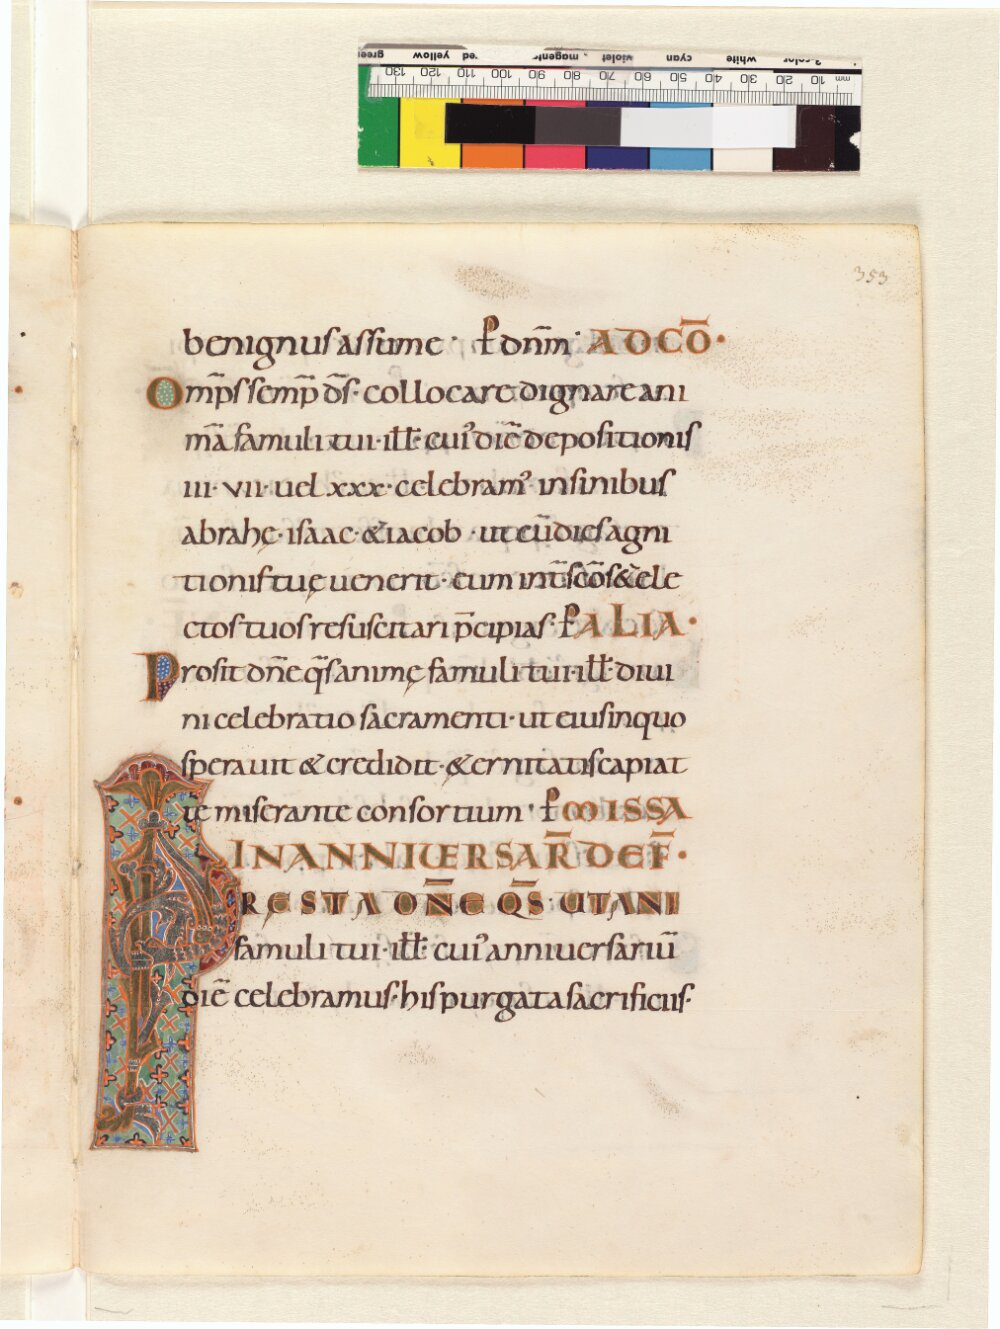 green yellow red magenta violet cyan white 3-color
130 120 110 100 90 80 70 60 50 40 30 20 10 mm
353
benignus assume · ꝑ dnm̄ · AD CŌ ·
Omp̄s semp̄ d̄s · collocare dignare ani
mā famuli tui · ill̄ · cuiꝰ diē depositionis
III · VII · uel XXX · celebramꝰ in sinibus
abrahę · isaac · & iacob · ut cū dies agni
tionis tuę uenerit · eum int̄ s̄cōs & ele
ctos tuos resuscitari p̄cipias · ꝑ ALIA ·
Prosit dn̄e q̄s animę famuli tui · ill̄ · diui
ni celebratio sacramenti · ut eius in quo
sperauit & credidit · &ernitatis capiat
te miserante consortium · ꝑ MISSA
IN ANNIUERSAR̄ DEF̄ ·
PRĘSTA DN̄E Q̄S · UT ANI
famuli tui · ill̄ · cuiꝰ anniuersariū
diē celebramus · his purgata sacrificiis ·